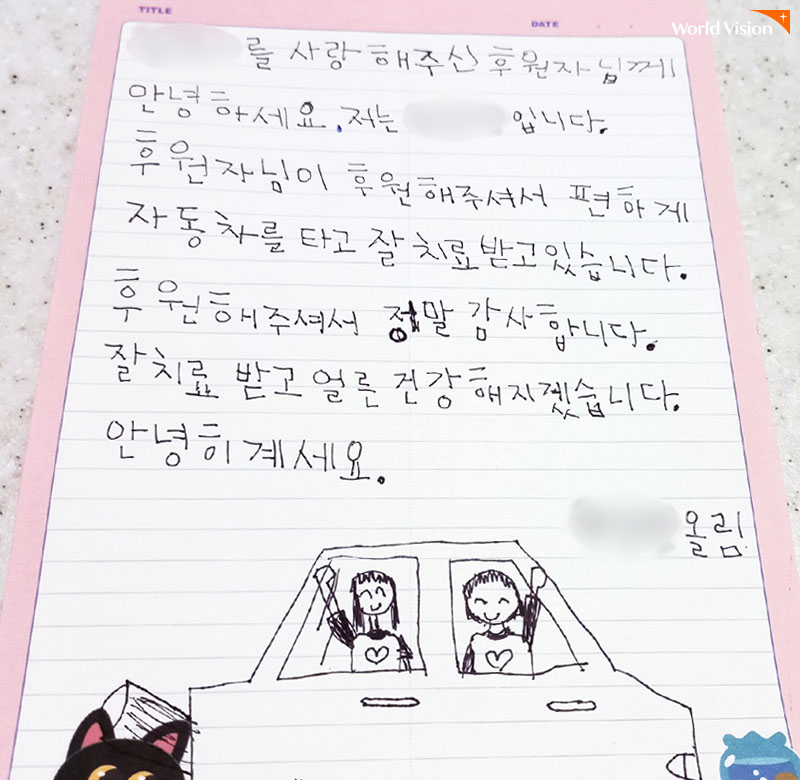 TITLE
DATE
World Vision
를 사랑해주신 후원자님께
안녕하세요. 저는 입니다.
후원자님이 후원해주셔서 편하게
자동차를 타고 잘 치료받고있습니다.
후원해주셔서 정말 감사합니다.
잘치료 받고 얼른 건강해지겠습니다.
안녕히 계세요.
올림